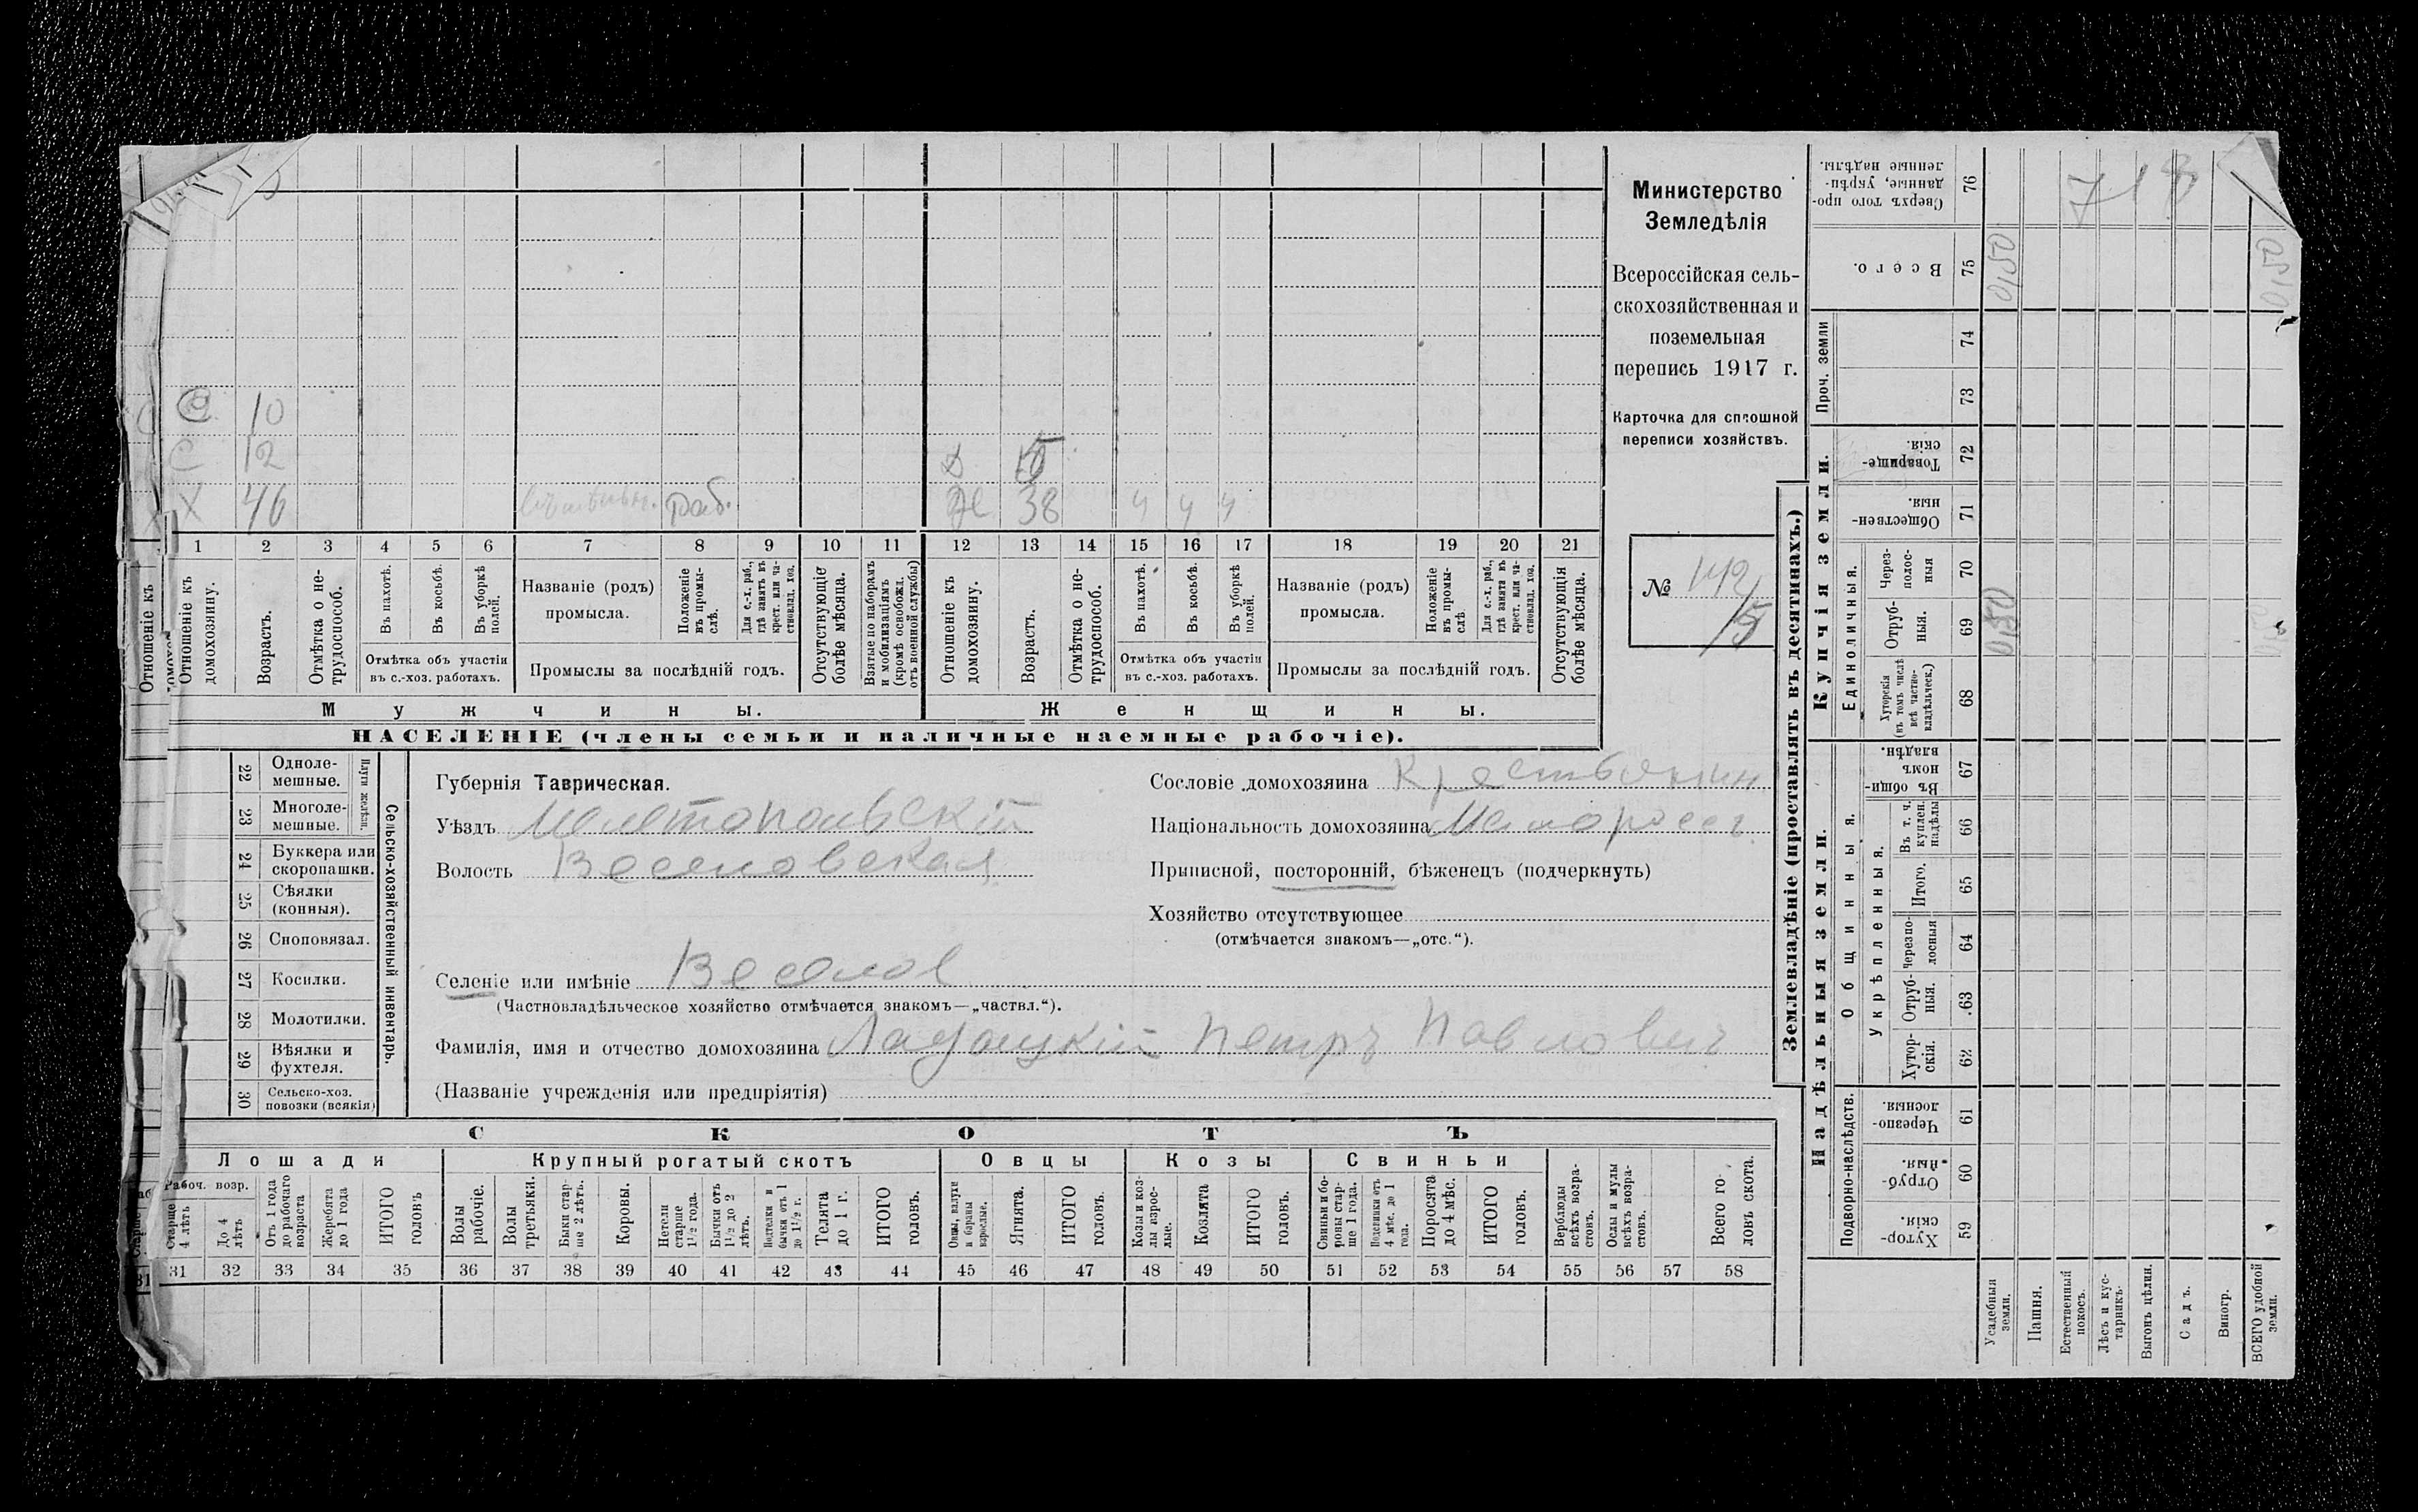 Министерство
Земледѣлія
Всероссійская сель-
скохозяйственная и
поземельная
перепись 1917 г.
Карточка для сплошной
переписи хозяйствъ.
№ 142
15
С 10
С 12
Д 15
Х 46 раб.
Ж 38 ч ч ч
1 2 3 4 5 6 7 8 9 10 11 12 13 14 15 16 17 18 19 20 21
Отношеніе къ домохозяину.
Возрастъ.
Отмѣтка о не-трудоспособ.
Въ пахотѣ.
Въ косьбѣ.
Въ уборкѣ полей.
Отмѣтка объ участіи
въ с.-хоз. работахъ.
Названіе (родъ)
промысла.
Положеніе въ промы-слѣ.
Для с.-х. раб., гдѣ занятъ въ крест. или ча-стновлад. хоз.
Промыслы за послѣдній годъ.
Отсутствующіе болѣе мѣсяца.
Взятые по наборамъ и мобилизаціямъ (кромѣ освобожд. отъ военной службы)
Отношеніе къ домохозяину.
Возрастъ.
Отмѣтка о не-трудоспособ.
Въ пахотѣ.
Въ косьбѣ.
Въ уборкѣ полей.
Отмѣтка объ участіи
въ с.-хоз. работахъ.
Названіе (родъ)
промысла.
Положеніе въ промы-слѣ.
Для с.-х. раб., гдѣ занята въ крест. или ча-стновлад. хоз.
Промыслы за послѣдній годъ.
Отсутствующія болѣе мѣсяца.
Мужчины.
Женщины.
НАСЕЛЕНІЕ (члены семьи и наличные наемные рабочіе).
22 Одноле-мешные.
23 Многоле-мешные.
Плуги желѣзн.
24 Буккера или скоропашки.
25 Сѣялки (конныя).
26 Сноповязал.
27 Косилки.
28 Молотилки.
29 Вѣялки и фухтеля.
30 Сельско-хоз. повозки (всякія)
Сельско-хозяйственный инвентарь.
Губернія Таврическая.
Уѣздъ Мелитопольскій
Волость Веселовская
Селеніе или имѣніе Веселое
(Частновладѣльческое хозяйство отмѣчается знакомъ—„частвл.“).
Фамилія, имя и отчество домохозяина Ладоцкій Петръ Павловичъ
(Названіе учрежденія или предпріятія)
Сословіе домохозяина Крестьянин
Національность домохозяина Малороссъ
Приписной, посторонній, бѣженецъ (подчеркнуть)
Хозяйство отсутствующее
(отмѣчается знакомъ—„отс.“).
СКОТЪ
Лошади
Крупный рогатый скотъ
Овцы
Козы
Свиньи
Рабоч. возр.
Старше 4 лѣтъ
До 4 лѣтъ
Отъ 1 года до рабочаго возраста
Жеребята до 1 года
ИТОГО головъ
Волы рабочіе.
Волы третьяки.
Быки стар-ше 2 лѣтъ.
Коровы.
Нетели старше 1½ года.
Бычки отъ 1½ до 2 лѣтъ.
Подтелки и бычки отъ 1 до 1½ г.
Телята до 1 г.
ИТОГО головъ.
Овцы, валухи и бараны взрослые.
Ягнята.
ИТОГО головъ.
Козы и коз-лы взрос-лые.
Козлята
ИТОГО головъ.
Свиньи и бо-ровы стар-ше 1 года.
Подсвинки отъ 4 мѣс. до 1 года.
Поросята до 4 мѣс.
ИТОГО головъ.
Верблюды всѣхъ возра-стовъ.
Ослы и мулы всѣхъ возра-стовъ.
Всего го-ловъ скота.
31 32 33 34 35 36 37 38 39 40 41 42 43 44 45 46 47 48 49 50 51 52 53 54 55 56 57 58
Землевладѣніе (проставлять въ десятинахъ.)
Надѣльныя земли.
Купчія земли.
Проч. земли
Подворно-наслѣдств.
Общинныя.
Укрѣпленныя.
Единоличныя.
Сверхъ того про-данные, укрѣп-ленные надѣлы. 76
Всего. 75
74
73
Товарище-скія. 72
Обществен-ныя. 71
Через-полос-ныя 70
Отруб-ныя. 69
Хуторскія (въ томъ числѣ всѣ частно-владѣльческ.) 68
Въ общин-номъ владѣн. 67
Въ т. ч. куплен. надѣлы 66
Итого. 65
Черезпо-лосныя 64
Отруб-ныя. 63
Хутор-скія. 62
Черезпо-лосныя. 61
Отруб-ныя. 60
Хутор-скія. 59
Усадебныя земли.
Пашня.
Естественный покосъ.
Лѣсъ и кус-тарникъ.
Выгонъ цѣлин.
Садъ.
Виногр.
ВСЕГО удобной земли.
718
0,50
0,50
0,50